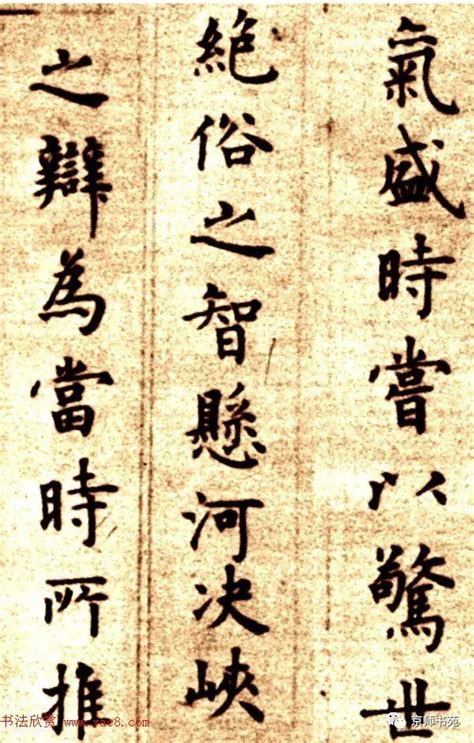 氣盛時嘗以驚世
絕俗之智懸河決峽
之辯為當時所推
书法欣赏 www.yac8.com
京师书苑